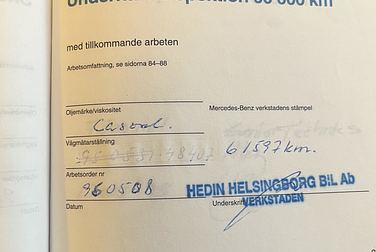 60 000 km
med tillkommande arbeten
Arbetsomfattning, se sidorna 84–88
Oljemärke/viskositet
Mercedes-Benz verkstadens stämpel
Castrol.
Vägmätarställning
61597km.
Arbetsorder nr
960508
HEDIN HELSINGBORG BIL Ab
Datum
Underskrift
VERKSTADEN